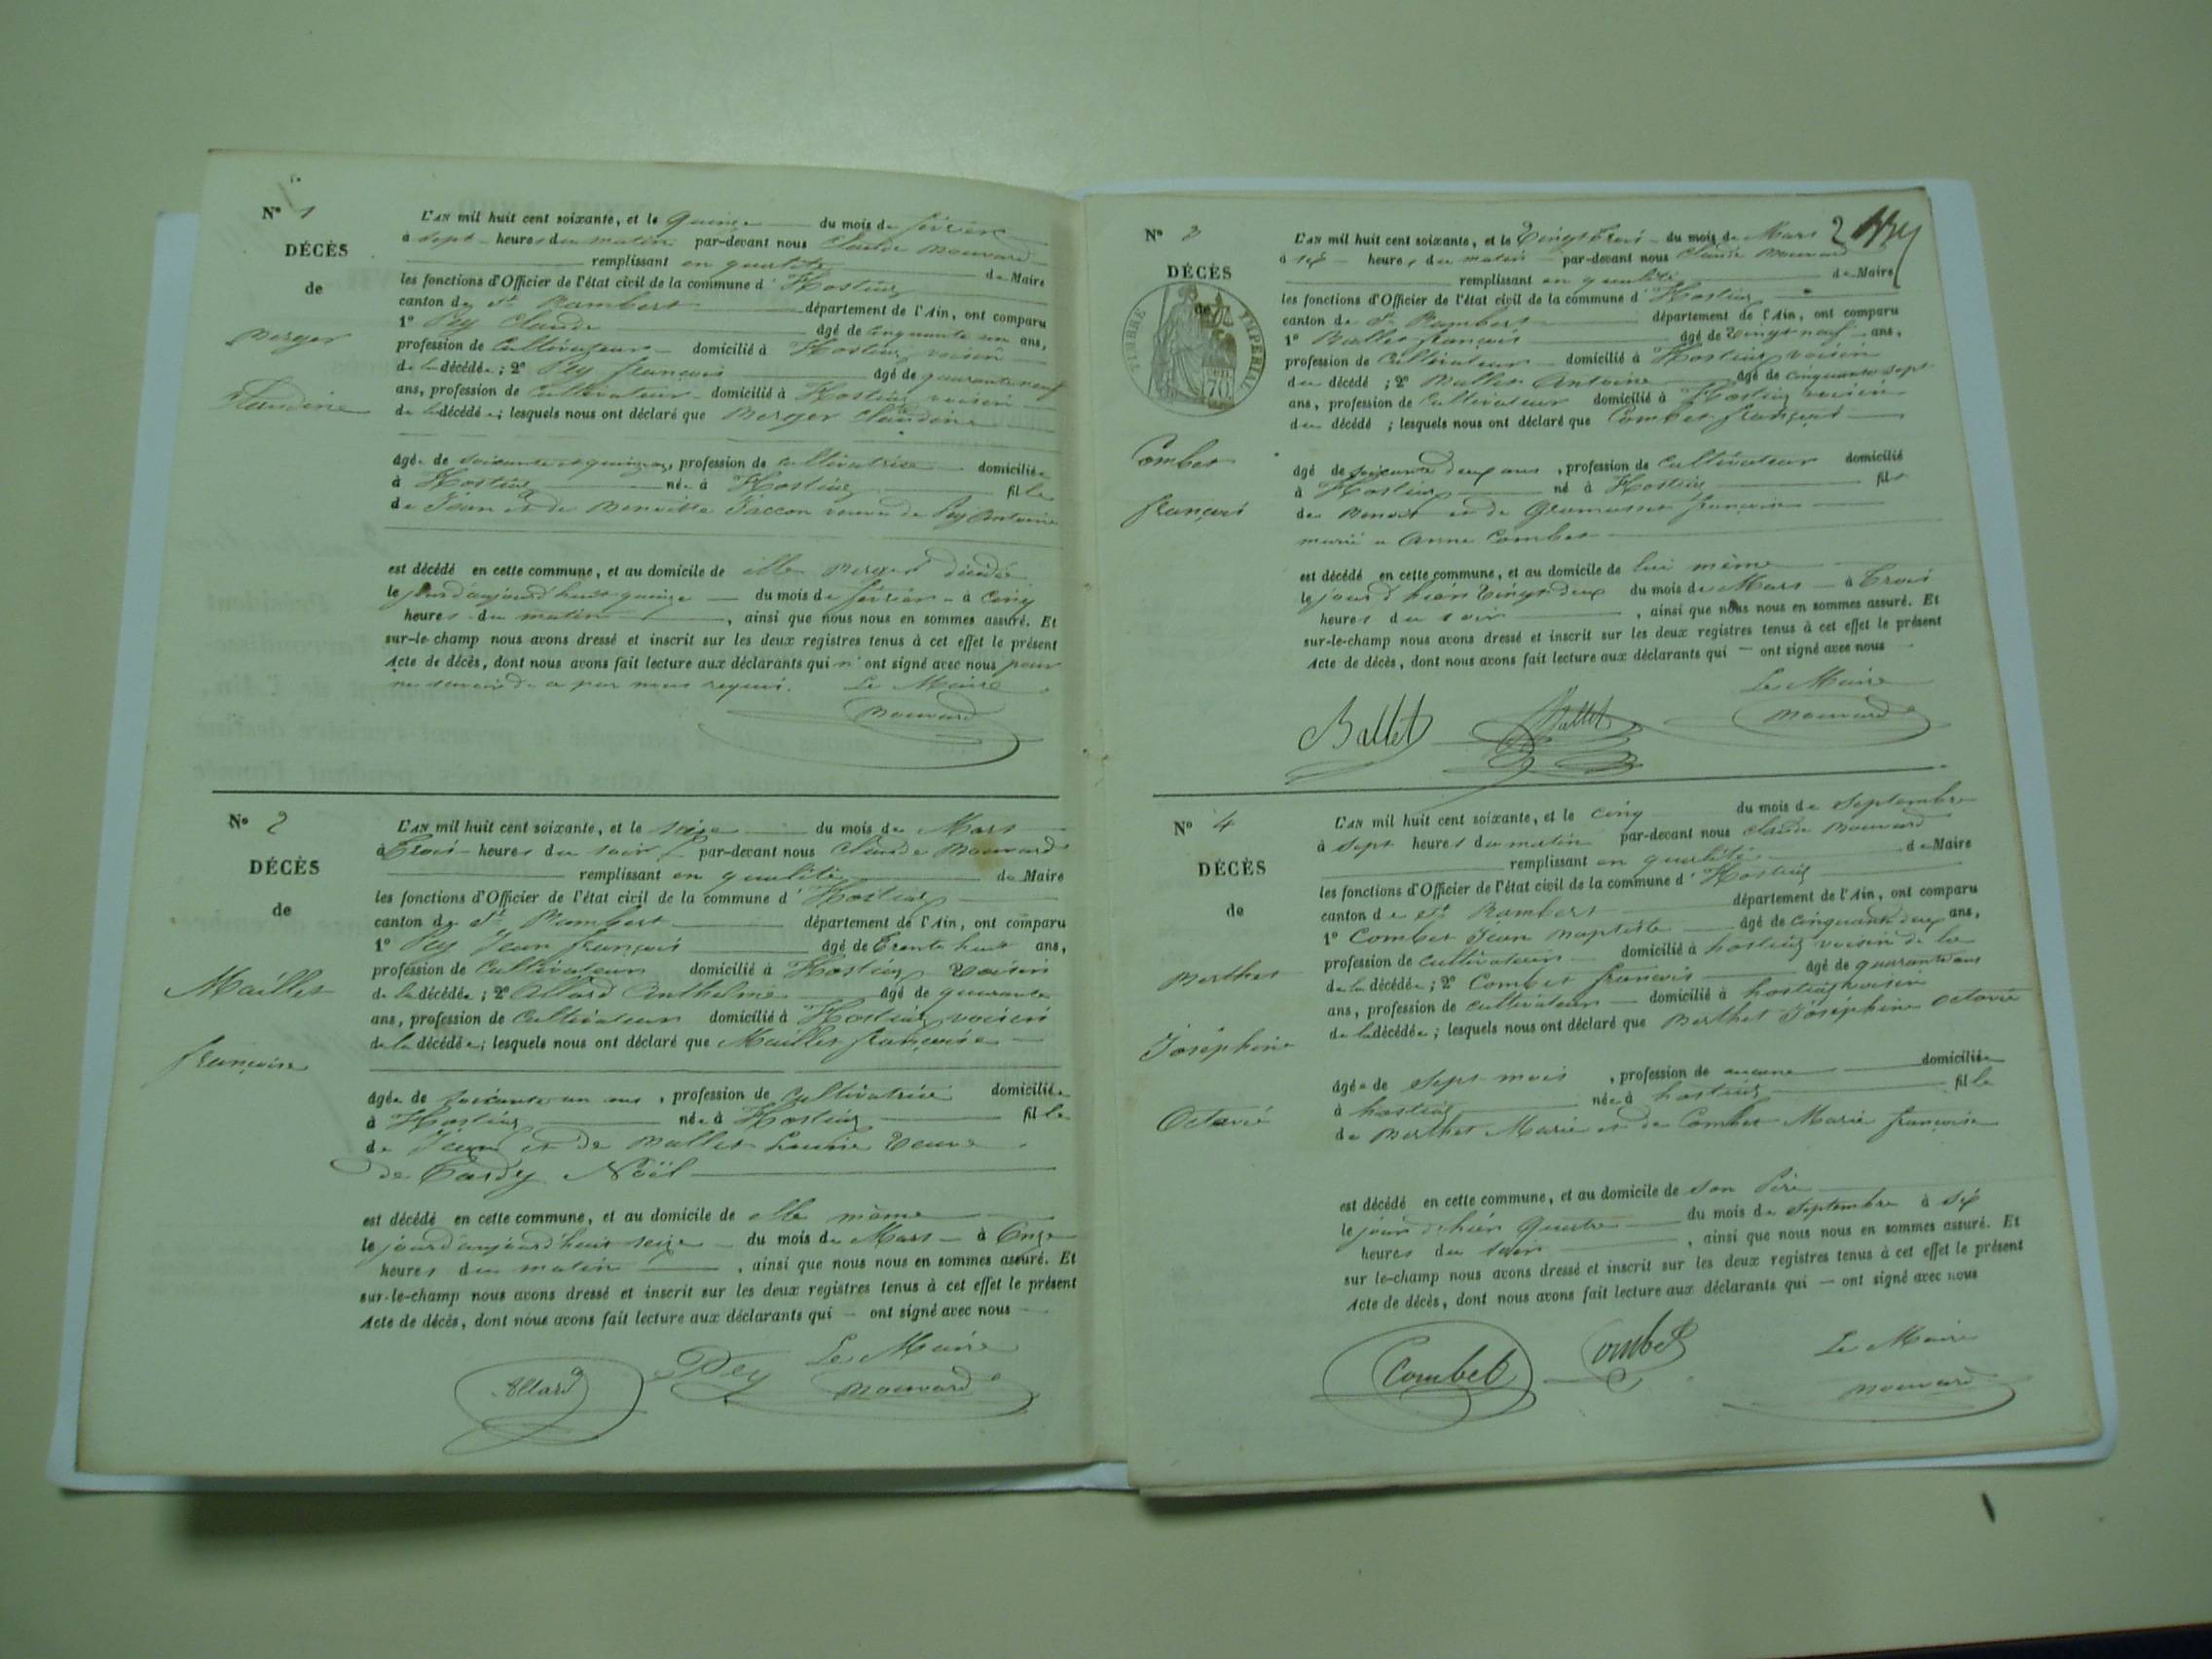 N° 1
DÉCÈS
de
Berger
Claudine
L'AN mil huit cent soixante, et le quinze du mois de février
à sept heures du matin par-devant nous Claude Mouvard
remplissant en qualité de Maire
les fonctions d'Officier de l'état civil de la commune d'Hostiaz
canton de St Rambert département de l'Ain, ont comparu
1° Pey Claude âgé de cinquante un ans,
profession de Cultivateur domicilié à Hostiaz voisin
de la décédée; 2° Pey françois âgé de quarante neuf
ans, profession de Cultivateur domicilié à Hostiaz voisin
de la décédée; lesquels nous ont déclaré que Berger Claudine
âgée de soixante et quinze ans, profession de cultivatrice domiciliée
à Hostiaz née à Hostiaz fille
de Jean et de Benoitte Jaccon veuve de Pey Antoine
est décédé en cette commune, et au domicile de elle Berger décédée
le jour d'aujourd'hui quinze du mois de février à cinq
heures du matin, ainsi que nous nous en sommes assuré. Et
sur-le-champ nous avons dressé et inscrit sur les deux registres tenus à cet effet le présent
Acte de décès, dont nous avons fait lecture aux déclarants qui n'ont signé avec nous pour
ne savoir de ce par nous requis. Le Maire
Mouvard
N° 2
DÉCÈS
de
Maillet
françoise
L'AN mil huit cent soixante, et le seize du mois de Mars
à Trois heures du soir par-devant nous Claude Mouvard
remplissant en qualité de Maire
les fonctions d'Officier de l'état civil de la commune d'Hostiaz
canton de St Rambert département de l'Ain, ont comparu
1° Pey Jean françois âgé de Trente huit ans,
profession de Cultivateur domicilié à Hostiaz voisin
de la décédée; 2° Allard Anthelme âgé de quarante
ans, profession de Cultivateur domicilié à Hostiaz voisin
de la décédée; lesquels nous ont déclaré que Maillet françoise
âgée de soixante un ans, profession de Cultivatrice domiciliée
à Hostiaz née à Hostiaz fille
de Jean et de Ballet Louise veuve
de Tardy Noël
est décédé en cette commune, et au domicile de elle même
le jour d'aujourd'hui seize du mois de Mars à Onze
heures du matin, ainsi que nous nous en sommes assuré. Et
sur-le-champ nous avons dressé et inscrit sur les deux registres tenus à cet effet le présent
Acte de décès, dont nous avons fait lecture aux déclarants qui — ont signé avec nous
Le Maire
Allard Pey Mouvard
2
N° 3
DÉCÈS
de
TIMBRE IMPERIAL
70
Combet
françois
L'AN mil huit cent soixante, et le Vingt trois du mois de Mars
à six heures du matin par-devant nous Claude Mouvard
remplissant en qualité de Maire
les fonctions d'Officier de l'état civil de la commune d'Hostiaz
canton de St Rambert département de l'Ain, ont comparu
1° Ballet françois âgé de Vingt neuf ans,
profession de Cultivateur domicilié à Hostiaz voisin
du décédé; 2° Ballet Antoine âgé de cinquante sept
ans, profession de Cultivateur domicilié à Hostiaz voisin
du décédé; lesquels nous ont déclaré que Combet françois
âgé de soixante deux ans, profession de Cultivateur domicilié
à Hostiaz né à Hostiaz fils
de Benoit et de Gramusset françoise
marié a Anne Combet
est décédé en cette commune, et au domicile de lui même
le jour d'hier Vingt deux du mois de Mars à Trois
heures du soir, ainsi que nous nous en sommes assuré. Et
sur-le-champ nous avons dressé et inscrit sur les deux registres tenus à cet effet le présent
Acte de décès, dont nous avons fait lecture aux déclarants qui — ont signé avec nous
Le Maire
Ballet Ballet Mouvard
N° 4
DÉCÈS
de
Berthet
Joséphine
Octavie
L'AN mil huit cent soixante, et le cinq du mois de Septembre
à sept heures du matin par-devant nous Claude Mouvard
remplissant en qualité de Maire
les fonctions d'Officier de l'état civil de la commune d'Hostiaz
canton de St Rambert département de l'Ain, ont comparu
1° Combet Jean Baptiste âgé de cinquante deux ans,
profession de cultivateur domicilié à hostiaz voisin de la
de la décédée; 2° Combet françois âgé de quarante ans
ans, profession de cultivateur domicilié à hostiaz voisin
de la décédée; lesquels nous ont déclaré que Berthet Joséphine Octavie
âgée de sept mois, profession de aucune domiciliée
à hostiaz née à hostiaz fille
de Berthet Marie et de Combet Marie françoise
est décédé en cette commune, et au domicile de son Père
le jour d'hier Quatre du mois de septembre à six
heures du soir, ainsi que nous nous en sommes assuré. Et
sur le-champ nous avons dressé et inscrit sur les deux registres tenus à cet effet le présent
Acte de décès, dont nous avons fait lecture aux déclarants qui — ont signé avec nous
Le Maire
Combet Combet Mouvard